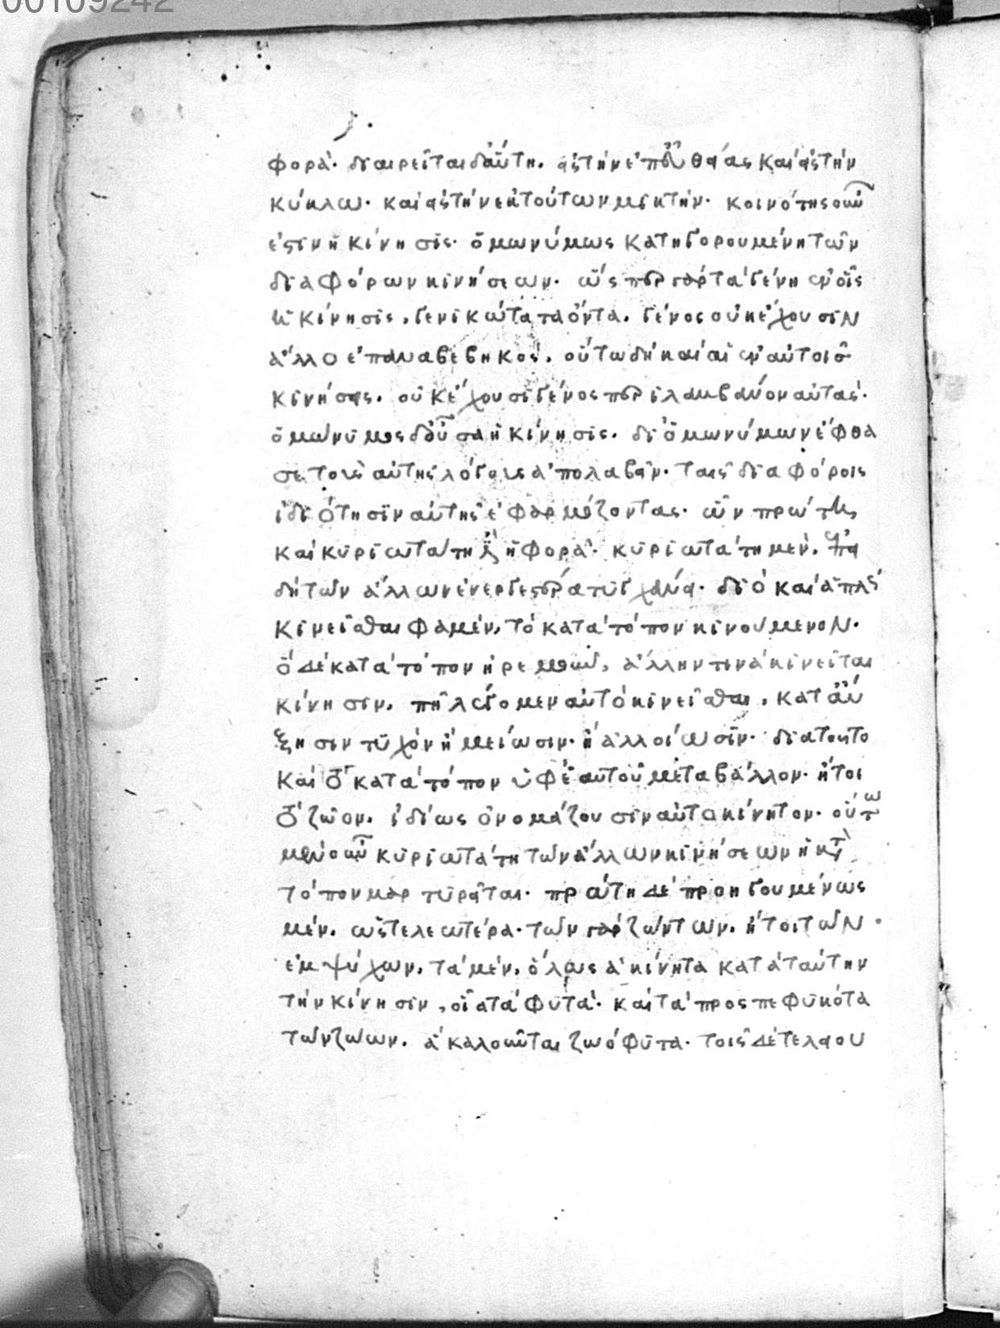 00109242
φορά· διαιρεῖται δ' αὕτη. εἰς τὴν ἐπ' εὐθείας καὶ εἰς τὴν
κύκλω· καὶ εἰς τὴν ἐκ τούτων μικτήν· κοινότης οὖν
ἐστιν ἡ κίνησις· ὁμωνύμως κατηγορουμένη τῶν
διαφόρων κινήσεων· ὥσπερ γὰρ τὰ γένη ἐν οἷς
ἡ κίνησις, γενικώτατα ὄντα. γένος οὐκ ἔχουσιν
ἄλλο ἐπαναβεβηκός. οὕτω δὴ καὶ αἱ ἐν αὐτοῖς
κινήσεις. οὐκ ἔχουσι γένος περιλαμβάνον αὐτάς·
ὁμώνυμος δ' οὖσα ἡ κίνησις. δι' ὁμωνύμων ἔφθα
σε τοὺς αὐτῆς λόγους ἀπολαβεῖν· ταῖς διαφόροις
ἰδιότησιν αὐτῆς ἐφαρμόζοντας· ὧν πρώτη
καὶ κυριωτάτη ἡ φορά· κυριωτάτη μὲν. ἐπεὶ
δὴ τῶν ἄλλων ἐνεργεστέρα τυγχάνει· διὸ καὶ ἁπλῶς
κινεῖσθαι φαμέν, τὸ κατὰ τόπον κινούμενον·
ὃ δὲ κατὰ τόπον ἠρεμοῦν, ἄλλην τινὰ κινεῖται
κίνησιν. πὴ λέγομεν αὐτὸ κινεῖσθαι, κατ' αὔ
ξησιν τυχὸν ἢ μείωσιν· ἢ ἀλλοίωσιν· διὰ τοῦτο
καὶ τὸ κατὰ τόπον ὑφ' ἑαυτοῦ μεταβάλλον· ἤτοι
τὸ ζῶον. ἰδίως ὀνομάζουσιν αὐτοκίνητον· οὕτω
μὲν οὖν κυριωτάτη τῶν ἄλλων κινήσεων ἡ κατὰ
τόπον μαρτυρεῖται· πρώτη δὲ προηγουμένως
μέν. ὡς τελεωτέρα· τῶν γὰρ ζώντων. ἤτοι τῶν
ἐμψύχων. τὰ μέν, ὅλως ἀκίνητα κατὰ ταύτην
τὴν κίνησιν, οἷα τὰ φυτά· καὶ τὰ προσπεφυκότα
τῶν ζώων. ἃ καλοῦνται ζωόφυτα· τοῖς δὲ τελείου